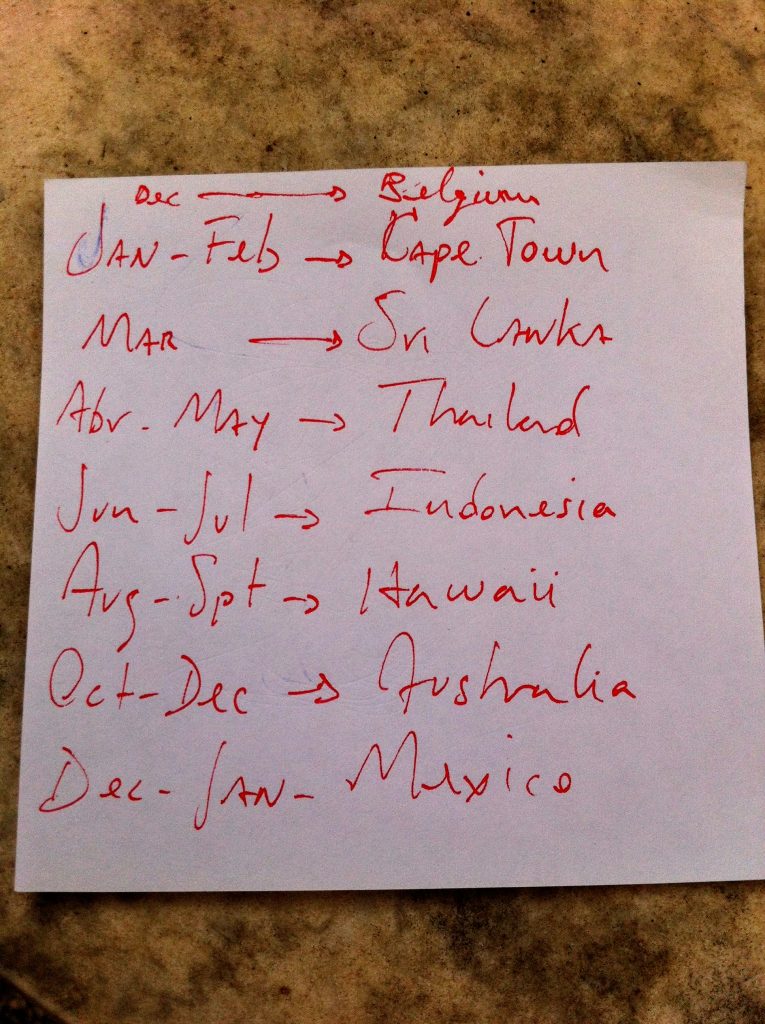 Dec → Belgium
JAN - Feb → Cape Town
MAR → Sri LANKA
Abr - MAY → Thailad
Jun - Jul → Indonesia
Aug - Spt → Hawaii
Oct - Dec → Australia
Dec - JAN - Mexico